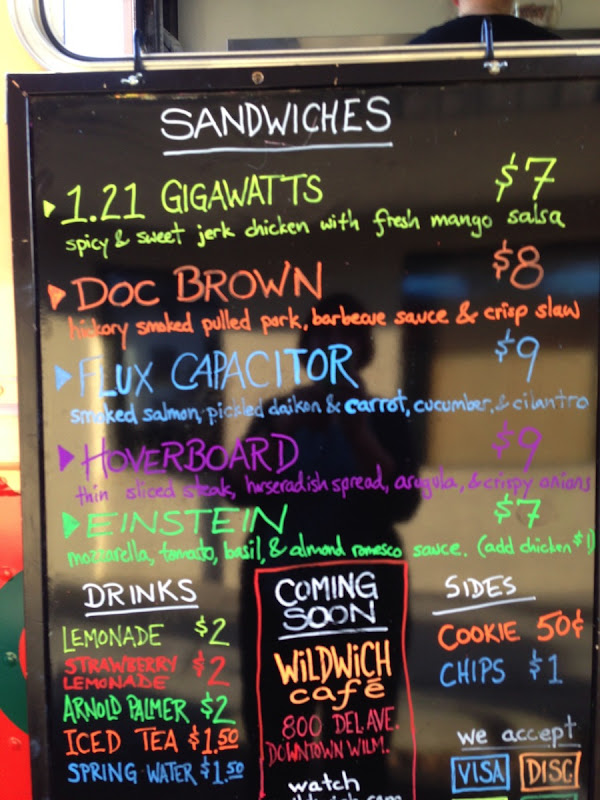 SANDWICHES
1.21 GIGAWATTS $7
spicy & sweet jerk chicken with fresh mango salsa
DOC BROWN $8
hickory smoked pulled pork, barbecue sauce & crisp slaw
FLUX CAPACITOR $9
smoked salmon, pickled daikon & carrot, cucumber, & cilantro
HOVERBOARD $9
thin sliced steak, horseradish spread, arugula, & crispy onions
EINSTEIN $7
mozzarella, tomato, basil, & almond romesco sauce. (add chicken $1)
DRINKS
LEMONADE $2
STRAWBERRY
LEMONADE $2
ARNOLD PALMER $2
ICED TEA $1.50
SPRING WATER $1.50
COMING
SOON
WiLDWiCH
café
800 DEL AVE.
DOWNTOWN WILM.
watch
SIDES
COOKIE 50¢
CHIPS $1
we accept
VISA DISC